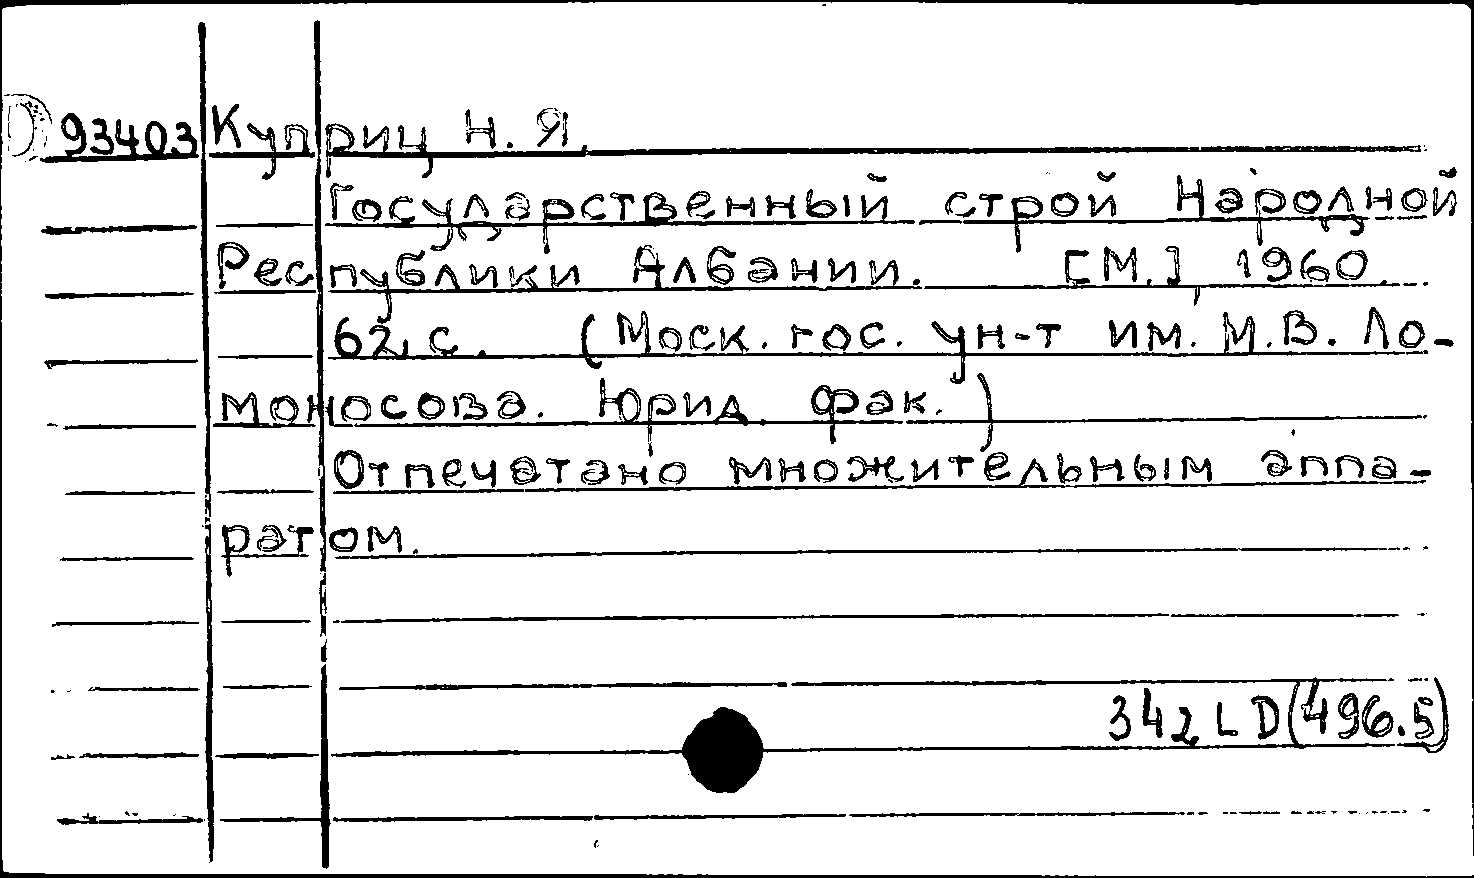 D 93403 Куприц Н. Я.
Государственный строй Народной
Республики Албании. [М.], 1960.
62 с. (Моск. гос. ун-т им. М.В. Ло-
моносова. Юрид. фак.)
Отпечатано множительным аппа-
ратом.
342 L D(496.5)